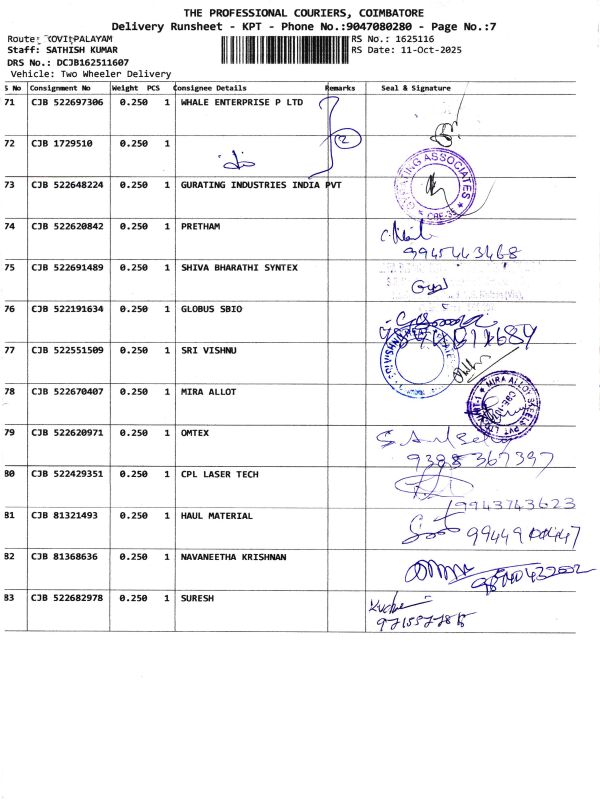 THE PROFESSIONAL COURIERS, COIMBATORE
Delivery Runsheet - KPT - Phone No.:9047080280 - Page No.:7
Route: KOVILPALAYAM
RS No.: 1625116
Staff: SATHISH KUMAR
RS Date: 11-Oct-2025
DRS No.: DCJB162511607
Vehicle: Two Wheeler Delivery
S No Consignment No Weight PCS Consignee Details Remarks Seal & Signature
71 CJB 522697306 0.250 1 WHALE ENTERPRISE P LTD
2
72 CJB 1729510 0.250 1
73 CJB 522648224 0.250 1 GURATING INDUSTRIES INDIA PVT
ASSOCIATES
CBE-35
74 CJB 522620842 0.250 1 PRETHAM
9945443468
75 CJB 522691489 0.250 1 SHIVA BHARATHI SYNTEX
76 CJB 522191634 0.250 1 GLOBUS SBIO
77 CJB 522551509 0.250 1 SRI VISHNU
78 CJB 522670407 0.250 1 MIRA ALLOT
MIRA ALLOY STEELS PVT LTD UNIT-1
79 CJB 522620971 0.250 1 OMTEX
9385367397
80 CJB 522429351 0.250 1 CPL LASER TECH
9943743623
81 CJB 81321493 0.250 1 HAUL MATERIAL
82 CJB 81368636 0.250 1 NAVANEETHA KRISHNAN
83 CJB 522682978 0.250 1 SURESH